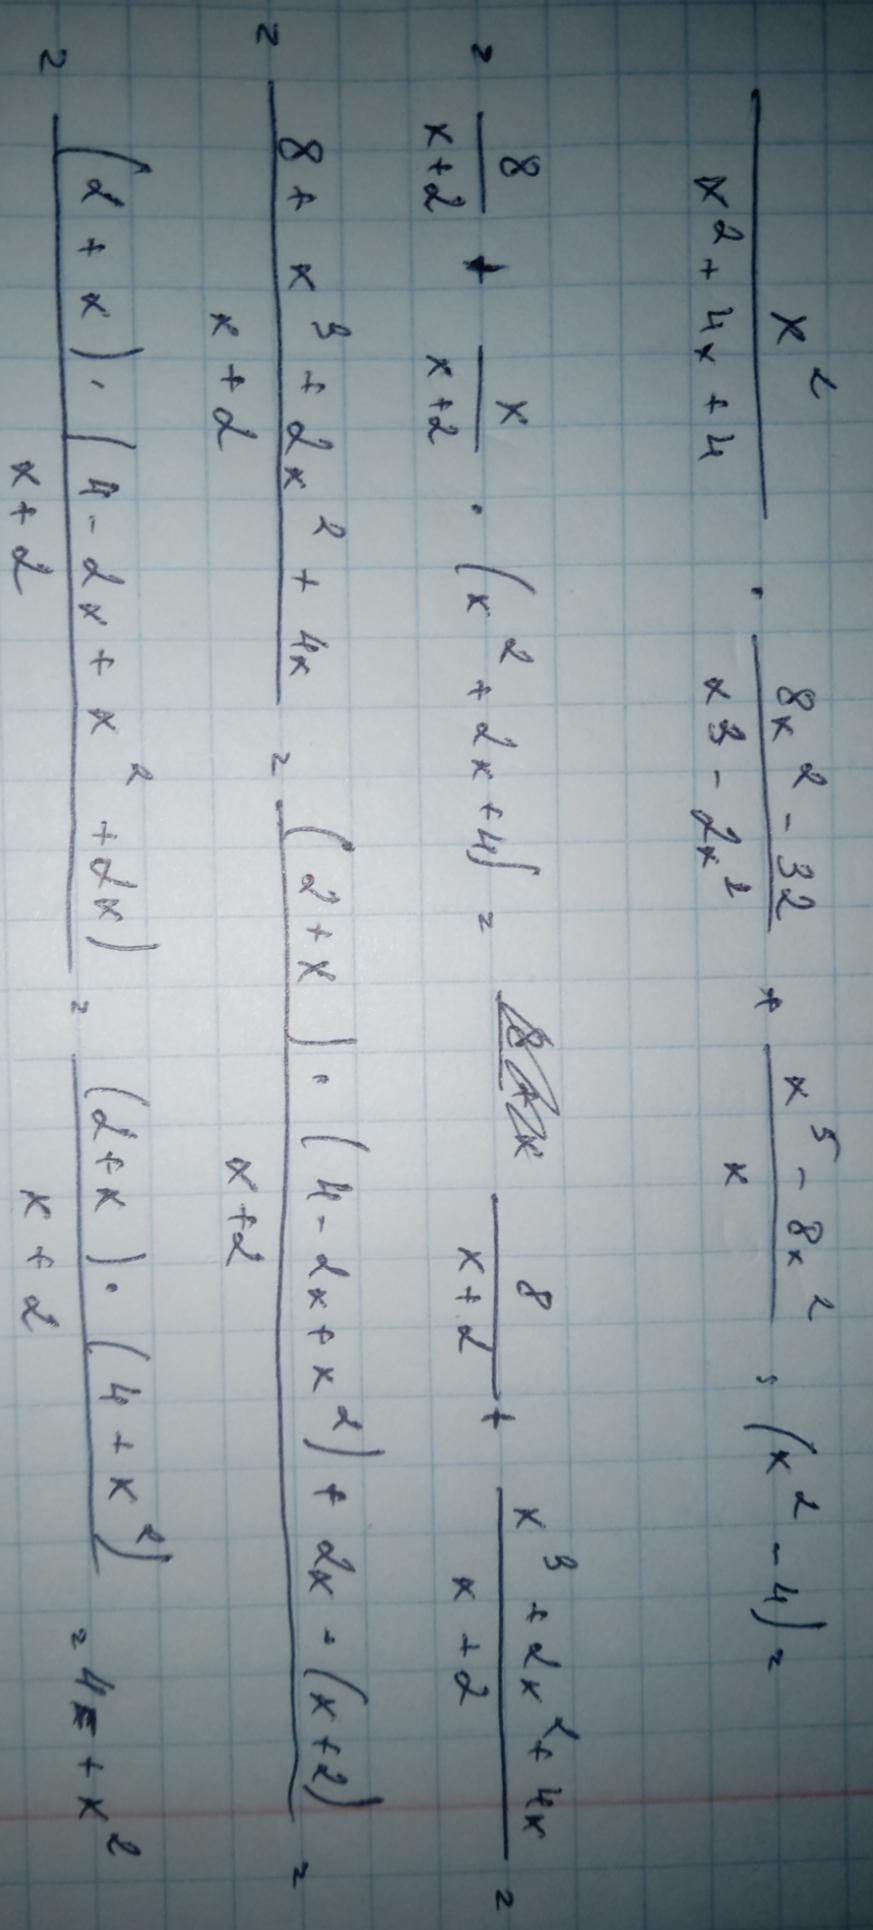 x²/(x² + 4x + 4) · (8x² - 32)/(x³ - 2x²) + (x⁵ - 8x²)/x : (x² - 4) =
= 8/(x+2) + x/(x+2) · (x² + 2x + 4) = 8/(x+2) + (x³ + 2x² + 4x)/(x+2) =
= (8 + x³ + 2x² + 4x)/(x+2) = ((2+x) · (4 - 2x + x²) + 2x · (x+2))/(x+2) =
= ((2+x) · (4 - 2x + x² + 2x))/(x+2) = ((2+x) · (4 + x²))/(x+2) = 4 + x²